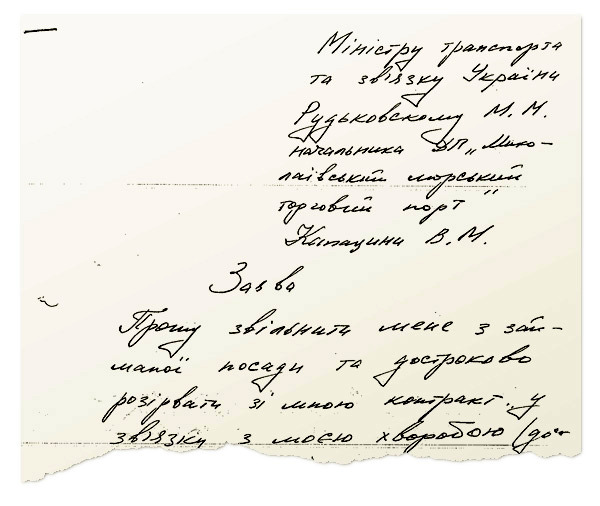 Міністру транспорта
та зв'язку України
Рудьковскому М. М.
начальника ДП „Мико-
лаївський морський
торговий порт"
Капацини В. М.
Заява
Прошу звільнити мене з зай-
маної посади та достроково
розірвати зі мною контракт. у
зв'язку з моєю хворобою (до